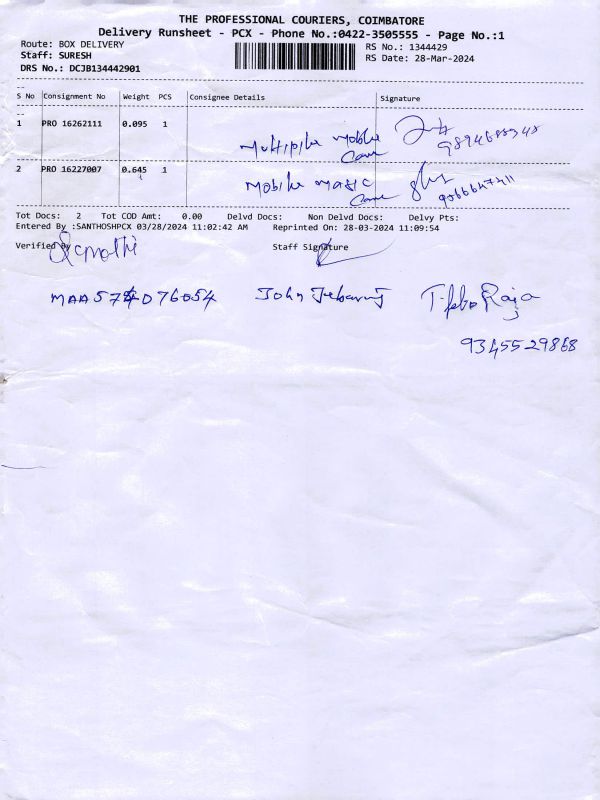 THE PROFESSIONAL COURIERS, COIMBATORE
Delivery Runsheet - PCX - Phone No.:0422-3505555 - Page No.:1
Route: BOX DELIVERY RS No.: 1344429
Staff: SURESH RS Date: 28-Mar-2024
DRS No.: DCJB134442901
S No Consignment No Weight PCS Consignee Details Signature
1 PRO 16262111 0.095 1
Multiple Mobile
Care
2 PRO 16227007 0.645 1
Mobile Magic
Care
Tot Docs: 2 Tot COD Amt: 0.00 Delvd Docs: Non Delvd Docs: Delvy Pts:
Entered By :SANTHOSHPCX 03/28/2024 11:02:42 AM Reprinted On: 28-03-2024 11:09:54
Verified By Staff Signature
John Raja
9345529868